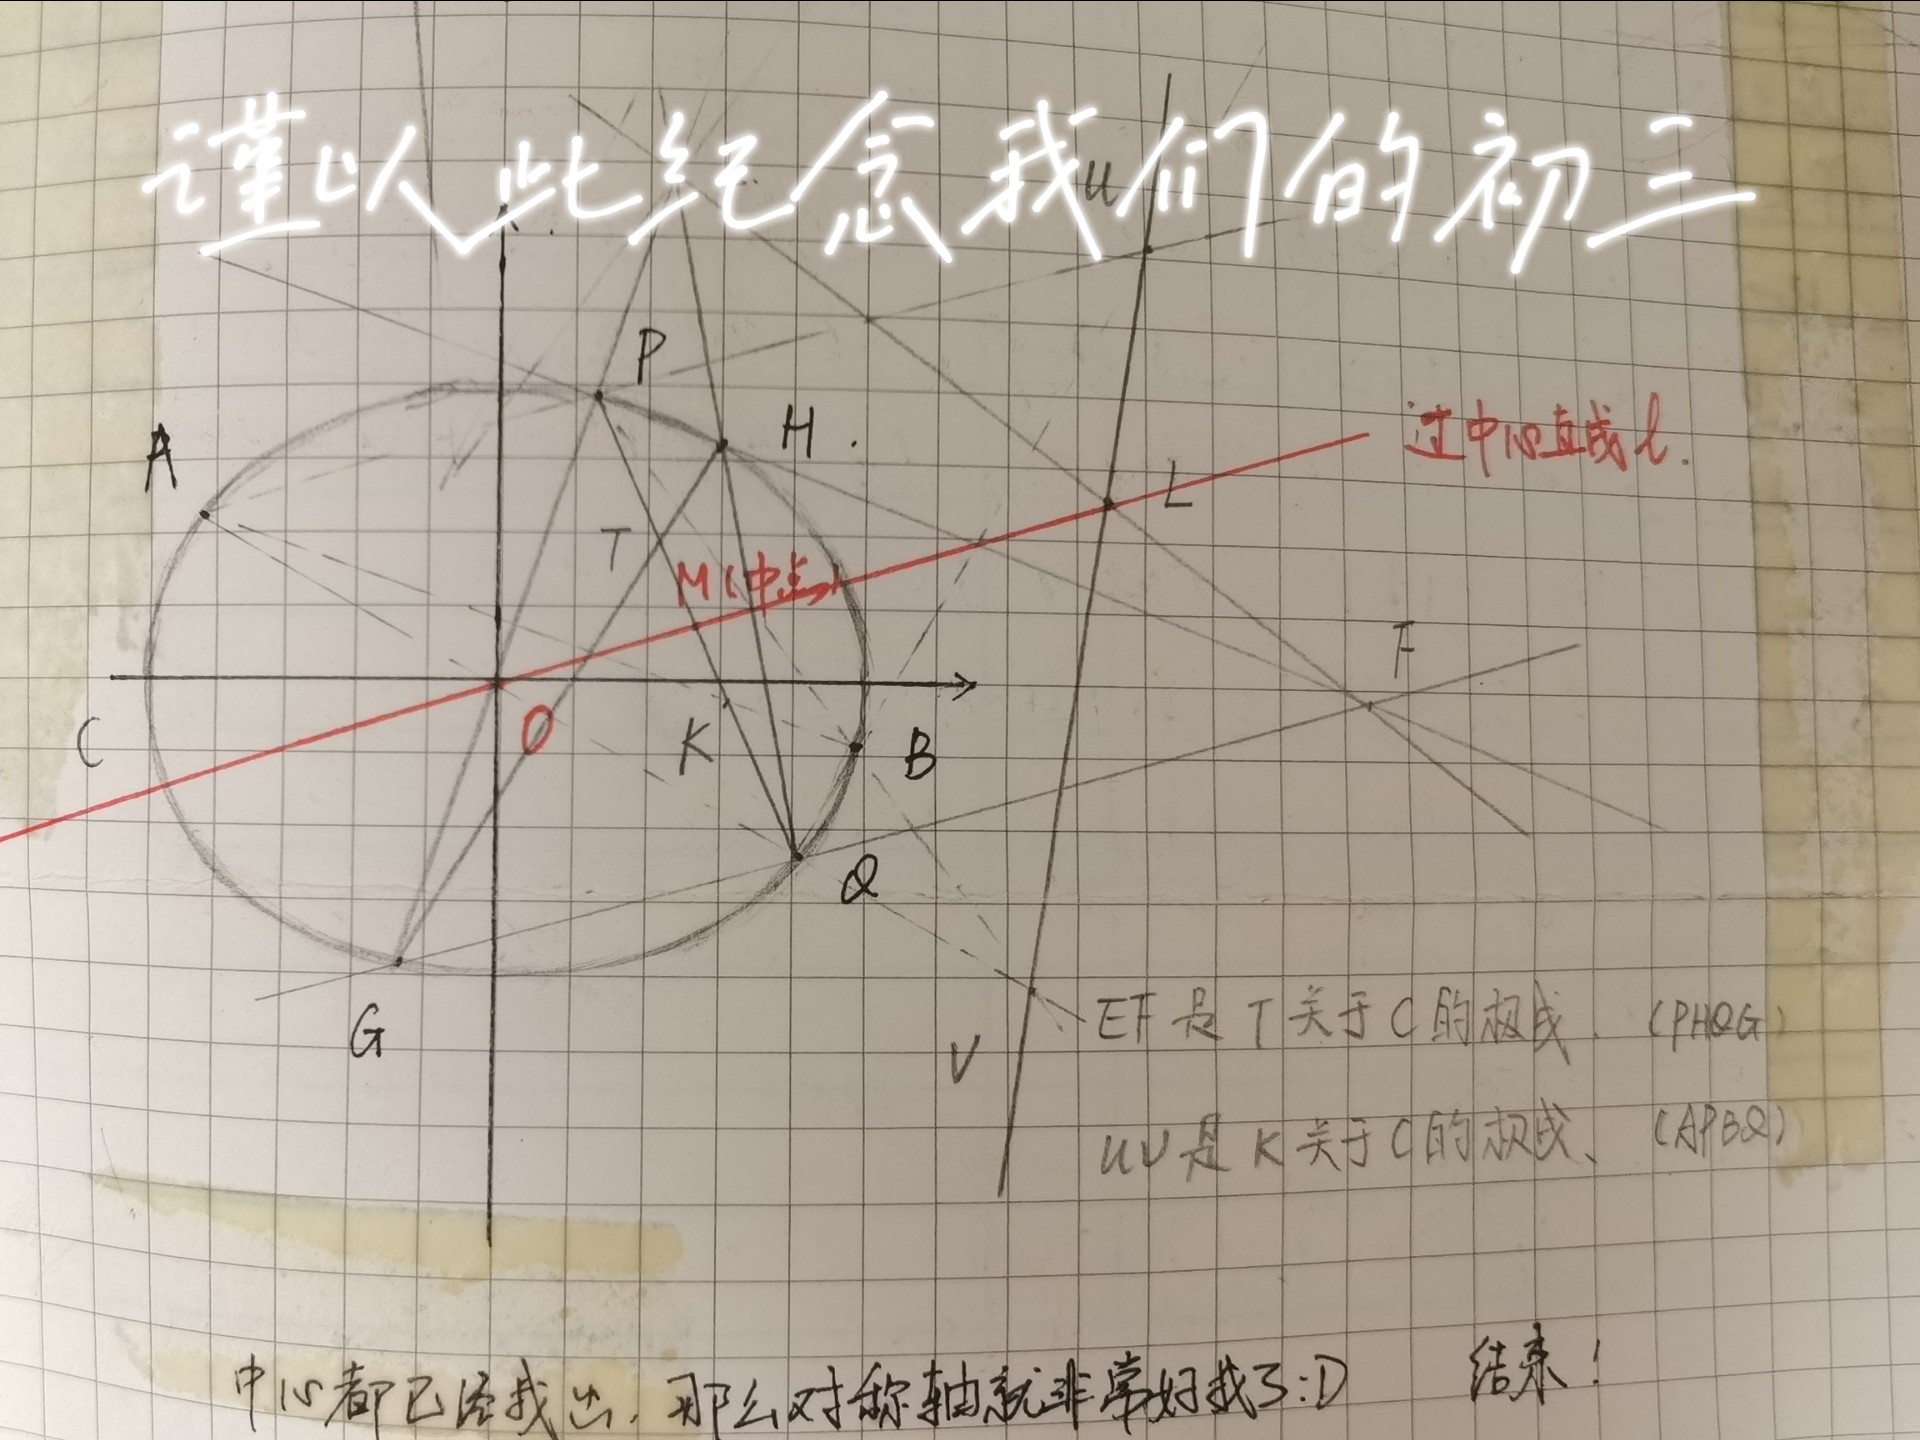 谨以此纪念我们的初三
U
P
H.
A
过中心直线l.
L
T
M(中点)
F
C
O
K
B
Q
G
V
EF是T关于C的极线.(PHQG)
UV是K关于C的极线、(APBQ)
中心都已经找出,那么对称轴就非常好找了:D 结束!